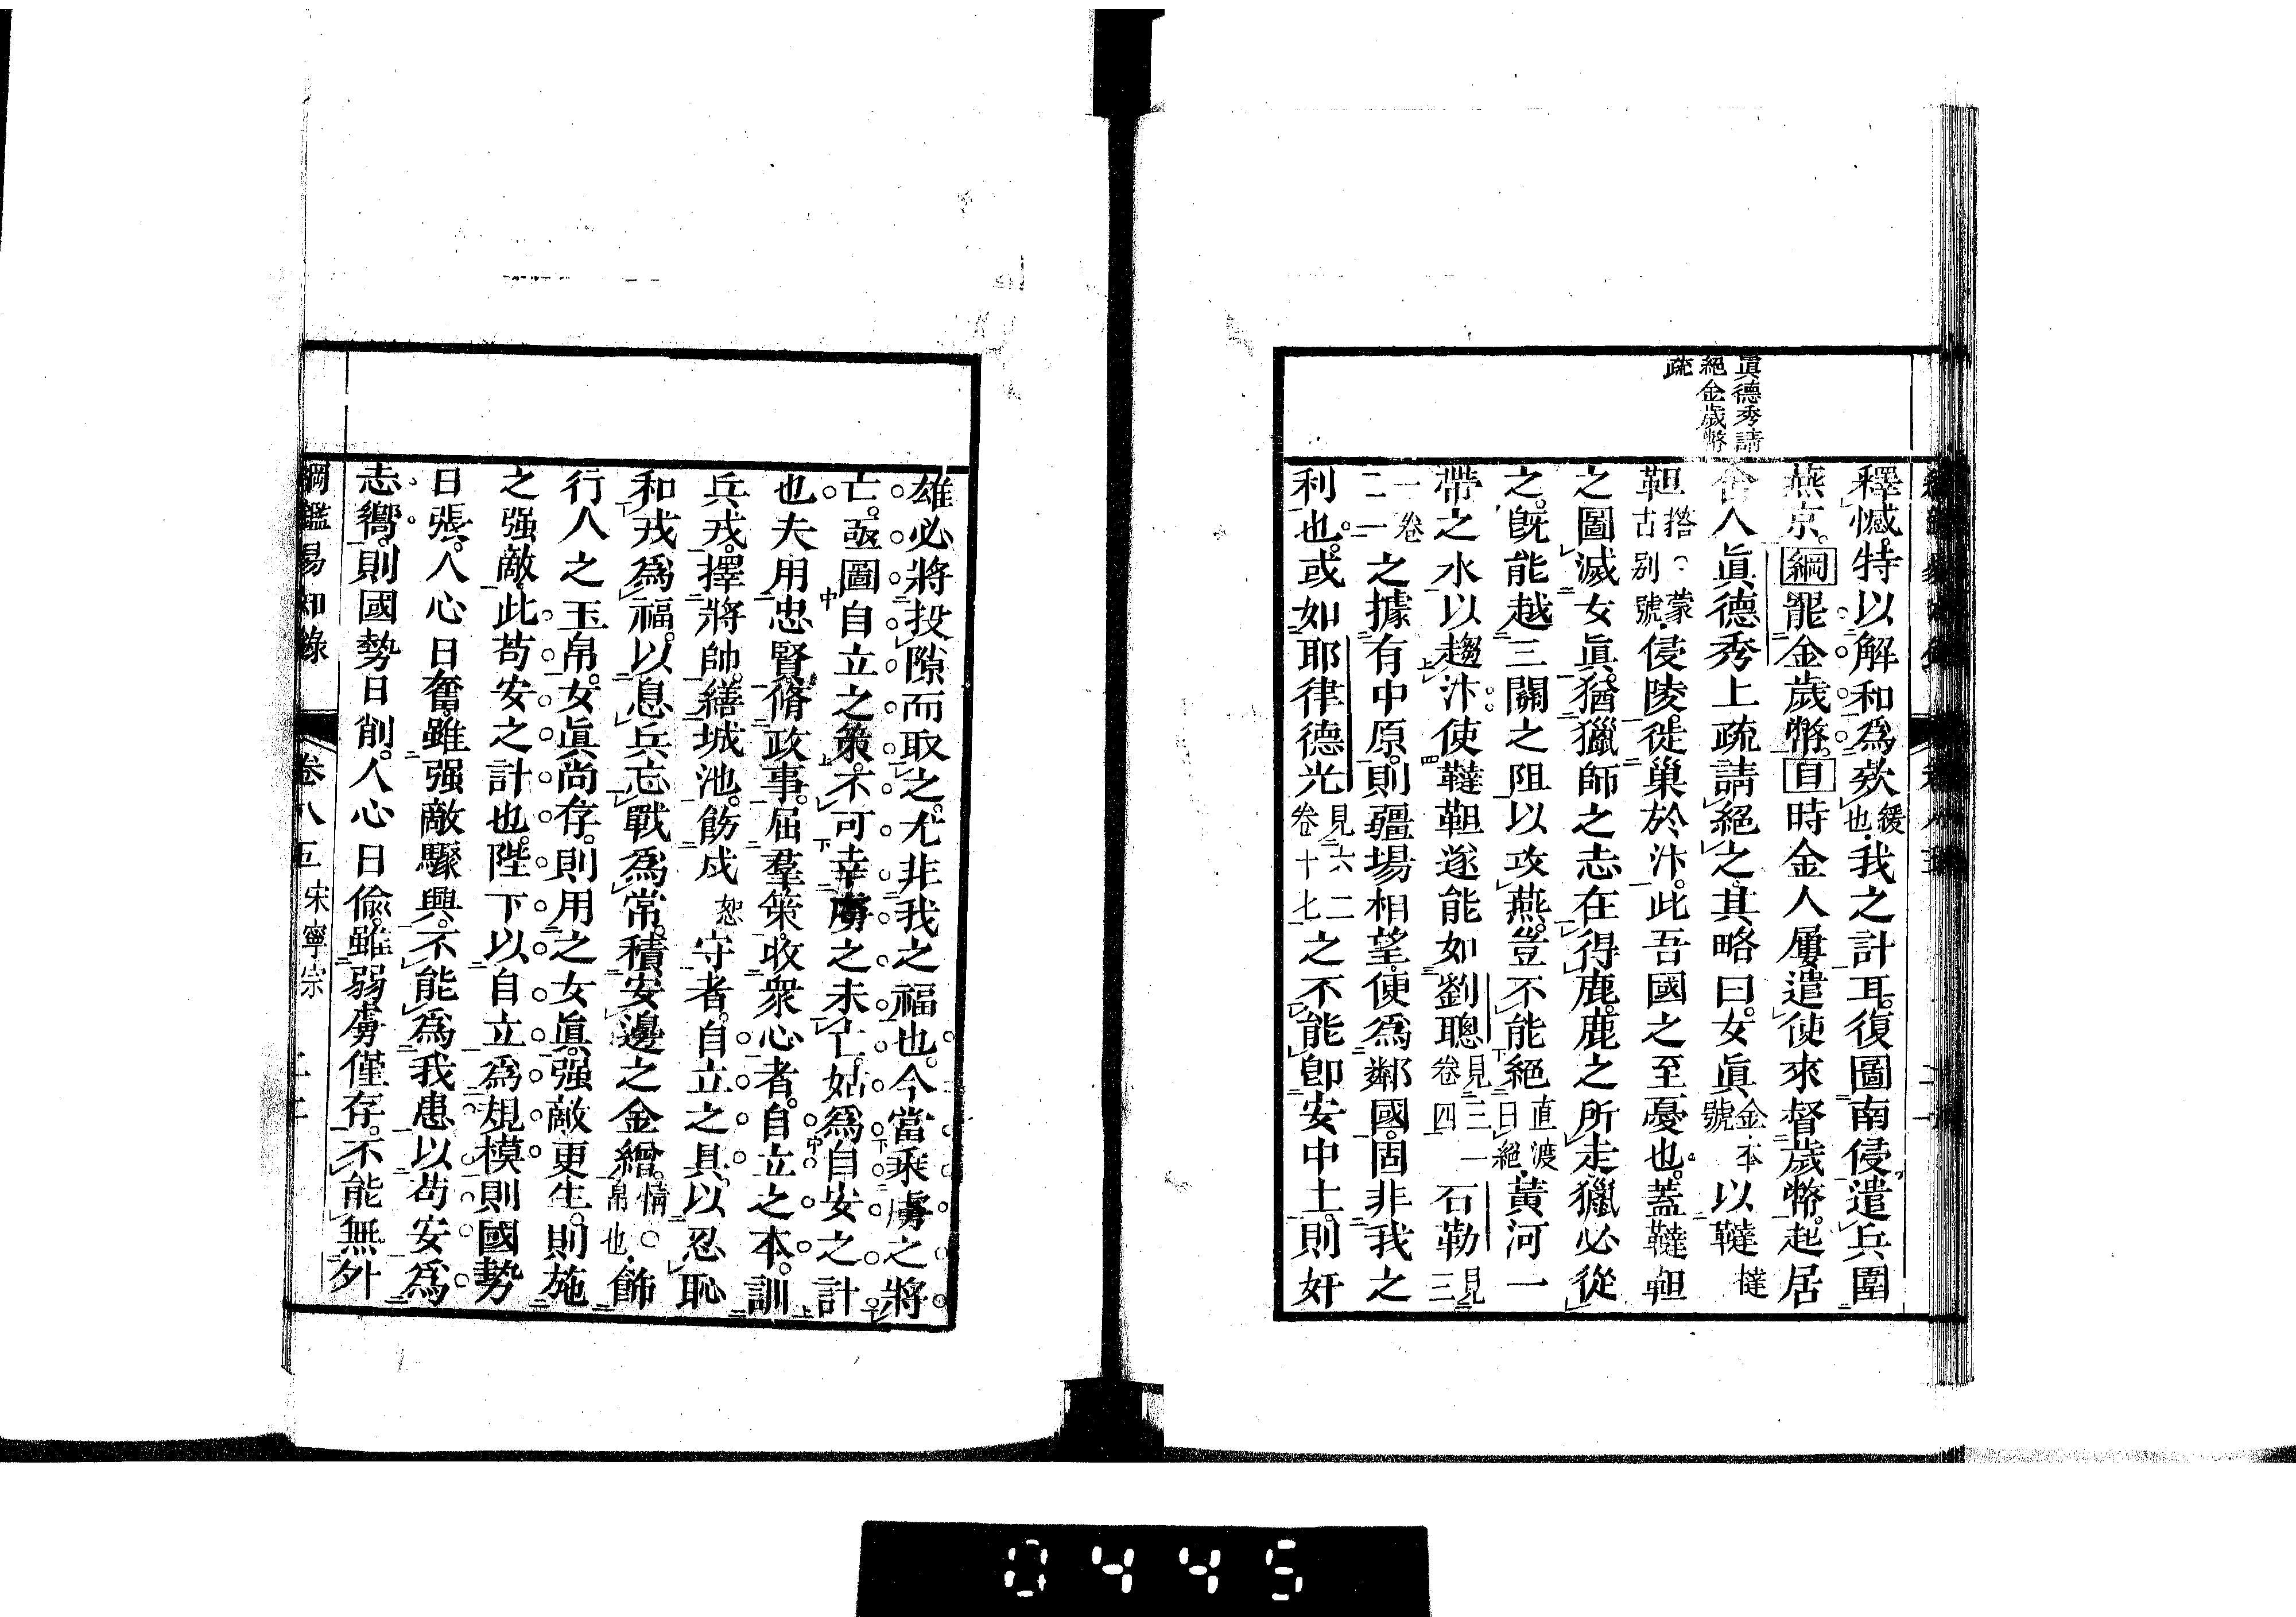 真德秀請
絕金歲幣
疏
釋憾特以解和爲欵緩也我之計耳。復圖南侵遣兵圍
燕京。綱罷金歲幣。目時金人屢遣使來督歲幣。起居
舍人眞德秀上疏請絕之其略曰。女眞金本號以韃撻
靼搭、蒙古别號侵陵。徙巢於汴。此吾國之至憂也。蓋韃靼
之圖滅女眞。猶獵師之志在得鹿。鹿之所走獵必從
之。旣能越三關之阻以攻燕。豈不能絕直渡曰絕黃河一
帶之水以趨汴使韃靼遂能如劉聰見三一卷四石勒見三
一卷二一之據有中原。則疆場相望使爲鄰國。固非我之
利也。或如耶律德光見六二卷十七之不能卽安中土。則奸
雄必將投隙而取之。尤非我之福也。今當乘虜之將
亡。亟圖自立之策。不可幸虜之未亡。姑爲自安之計
也夫用忠賢。脩政事。屈羣策。收衆心者。自立之本。訓
兵戎。擇將帥。繕城池。飭戍恕守者。自立之具。以忍恥
和戎爲福。以息兵忘戰爲常。積安邊之金繒。情帛也飾
行人之玉帛。女眞尚存。則用之女眞。强敵更生。則施
之强敵。此苟安之計也。陛下以自立爲規模則國勢
日張。人心日奮。雖强敵驟興。不能爲我患以苟安爲
志嚮。則國勢日削。人心日偸。雖弱虜僅存。不能無外
綱鑑易知錄 卷八五 宋寧宗
0445